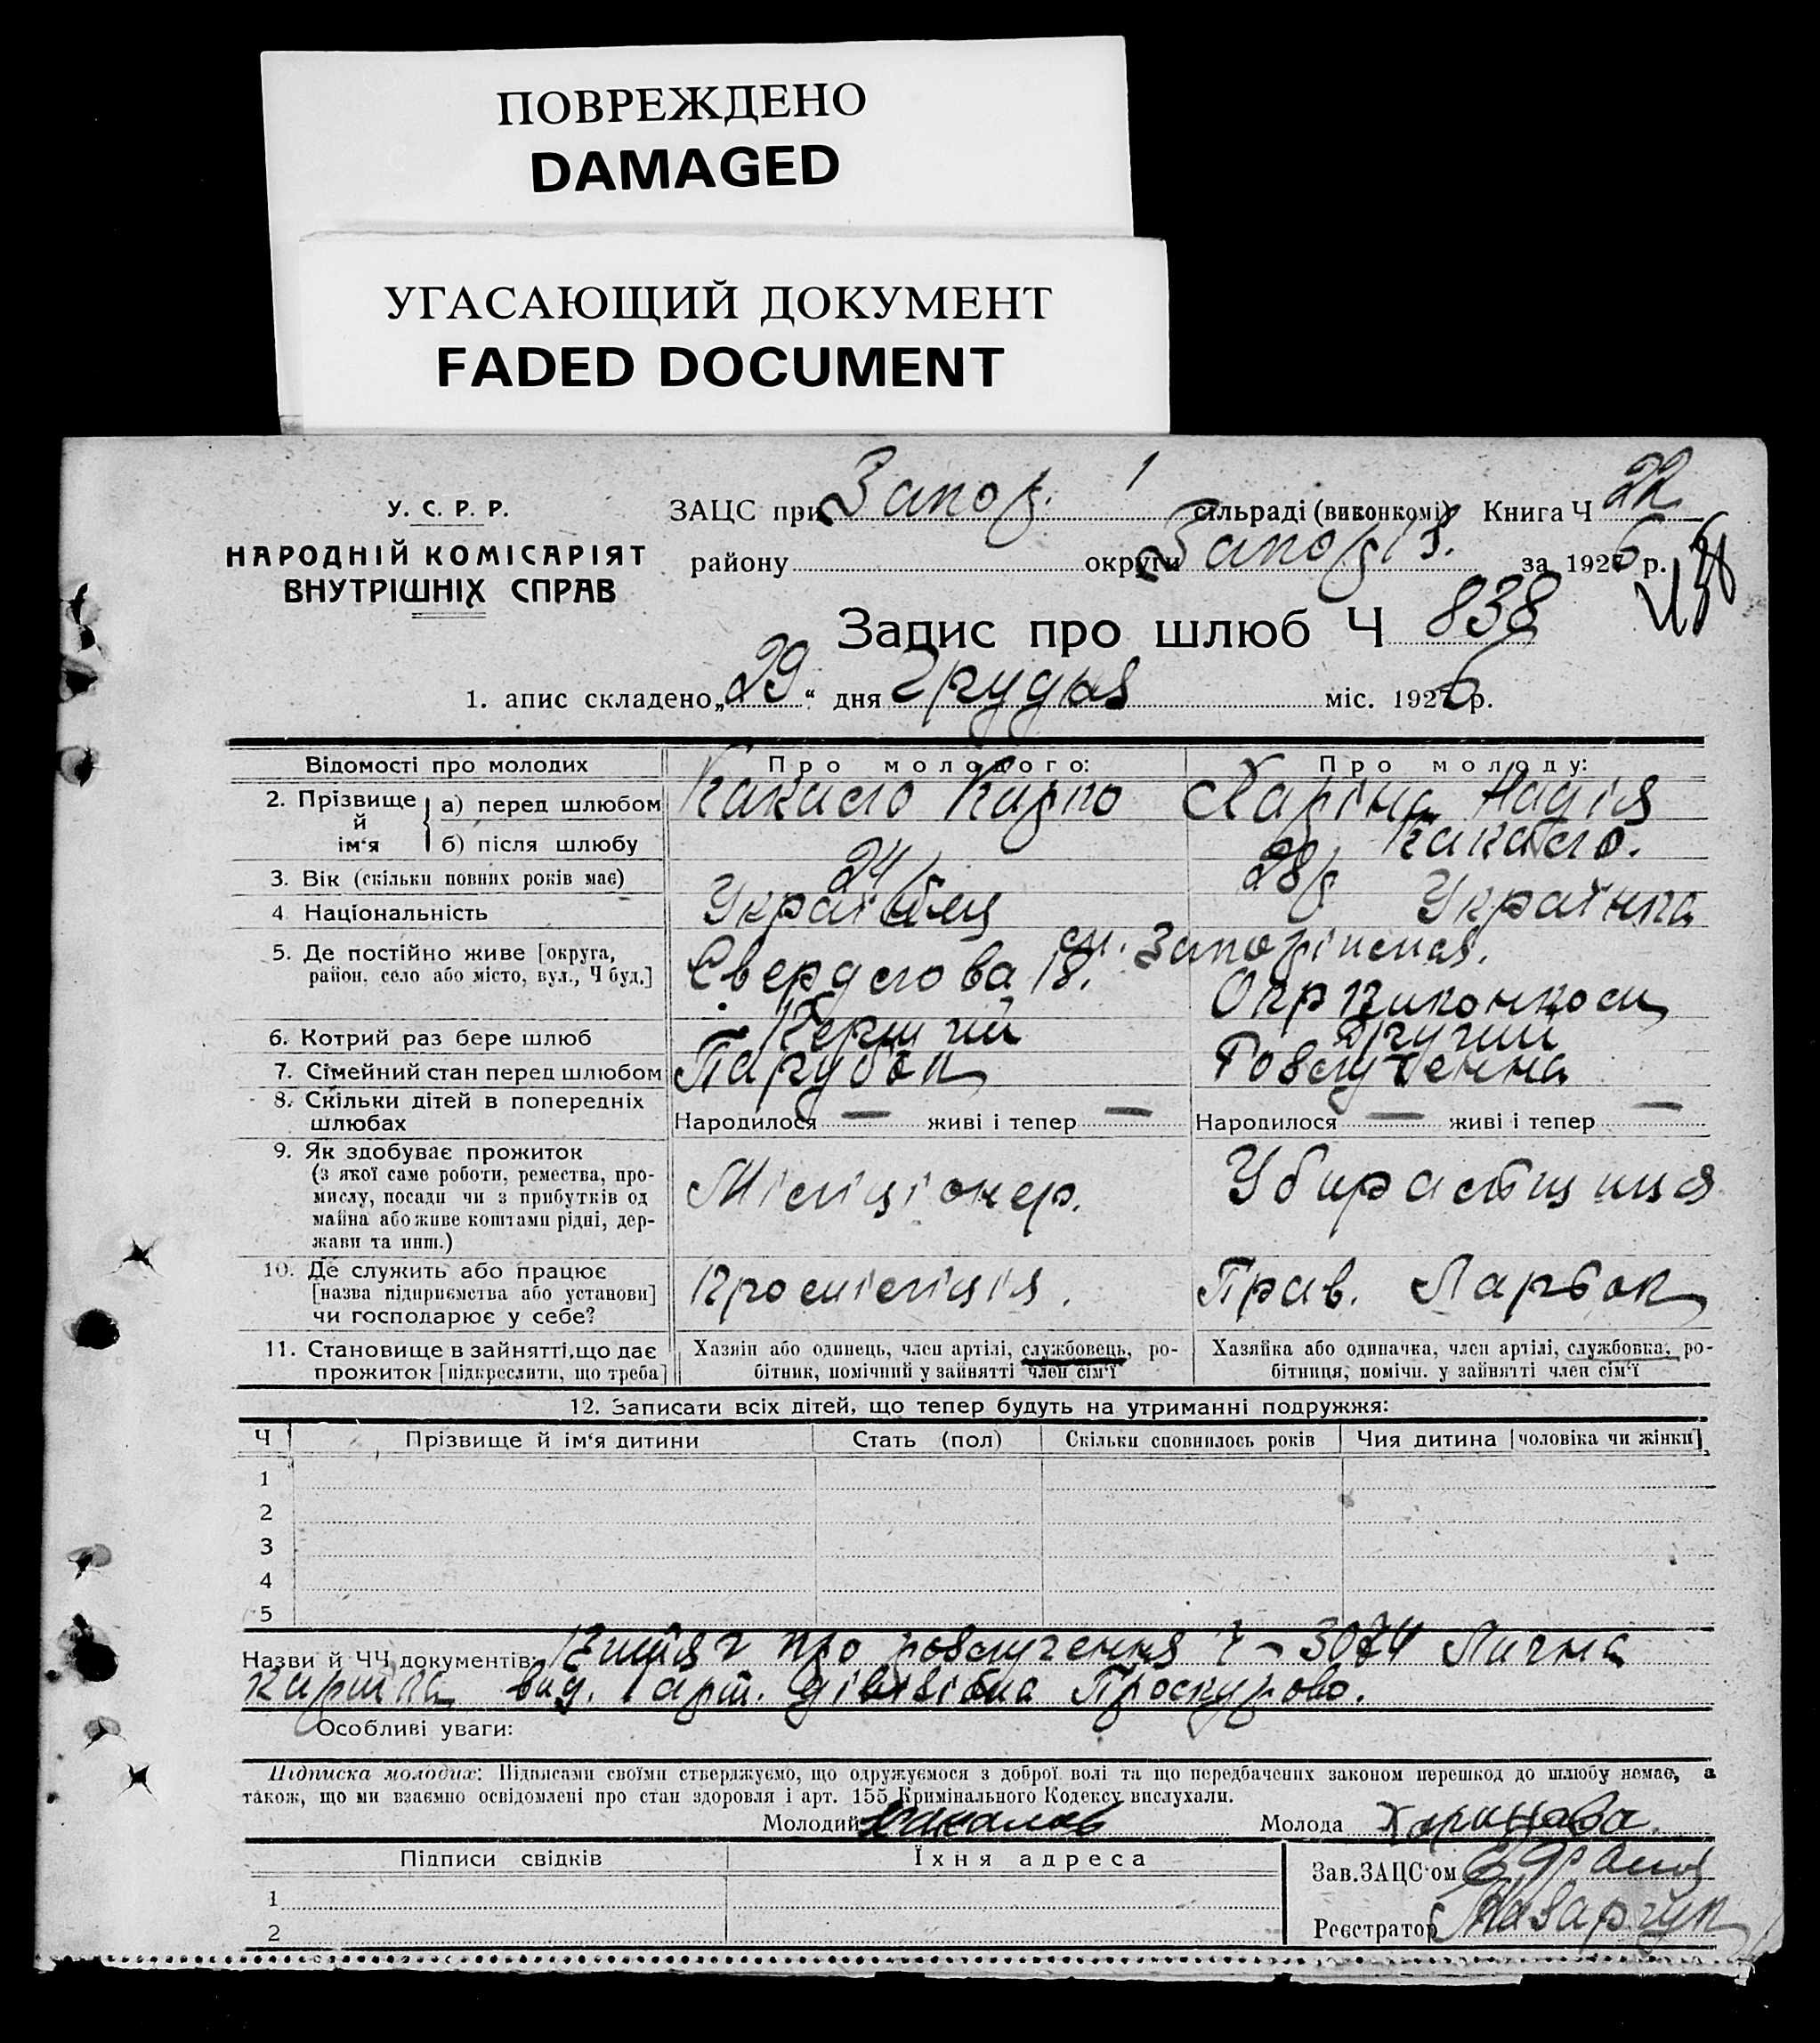 ПОВРЕЖДЕНО
DAMAGED
УГАСАЮЩИЙ ДОКУМЕНТ
FADED DOCUMENT
У. С. Р. Р.
НАРОДНІЙ КОМІСАРІЯТ
ВНУТРІШНІХ СПРАВ
ЗАЦС при Запор. сільраді (виконкомі) Книга Ч 22
району округи Запоріз. за 1926 р.
Запис про шлюб Ч 838
1. апис складено „29“ дня Грудня міс. 1926 р.
Відомості про молодих Про молодого: Про молоду:
2. Прізвище й ім'я а) перед шлюбом Какало Карпо Харіна Надія
б) після шлюбу Какало.
3. Вік (скільки повних років має) 24 28
4 Національність Українець Українка
5. Де постійно живе [округа, район, село або місто, вул., Ч буд.] м. Запоріжжя.
Свердлова 18. Окрвиконком
6. Котрий раз бере шлюб Перший Другий
7. Сімейний стан перед шлюбом Парубок Розлученна
8. Скільки дітей в попередніх шлюбах Народилося — живі і тепер — Народилося — живі і тепер —
9. Як здобуває прожиток
(з якої саме роботи, ремества, промислу, посади чи з прибутків од майна або живе коштами рідні, держави та инш.) Міліціонер. Убиральщиця
10. Де служить або працює
[назва підприємства або установи]
чи господарює у себе? Промміліція. Прав. Ларьок
11. Становище в зайнятті, що дає прожиток [підкреслити, що треба] Хазяїн або одинець, член артілі, службовець, робітник, помічний у зайнятті член сім'ї Хазяйка або одиначка, член артілі, службовка, робітниця, помічн. у зайнятті член сім'ї
12. Записати всіх дітей, що тепер будуть на утриманні подружжя:
Ч Прізвище й ім'я дитини Стать (пол) Скільки сповнилось років Чия дитина [чоловіка чи жінки]
1
2
3
4
5
Назви й ЧЧ документів: Витяг про розлучення Ч – Лична
картка вид. арт. дівізіона Проскурово.
Особливі уваги:
Підписка молодих: Підписами своїми стверджуємо, що одружуємося з доброї волі та що передбачених законом перешкод до шлюбу немає, а
також, що ми взаємно освідомлені про стан здоровля і арт. 155 Кримінального Кодексу вислухали.
Молодий Молода
Підписи свідків Їхня адреса Зав. ЗАЦС'ом
1
2 Реєстратор Назарчук